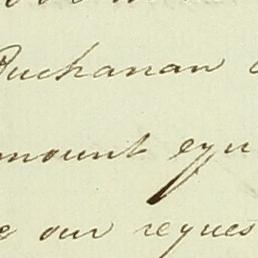 Buchanan
mount equ
our reques